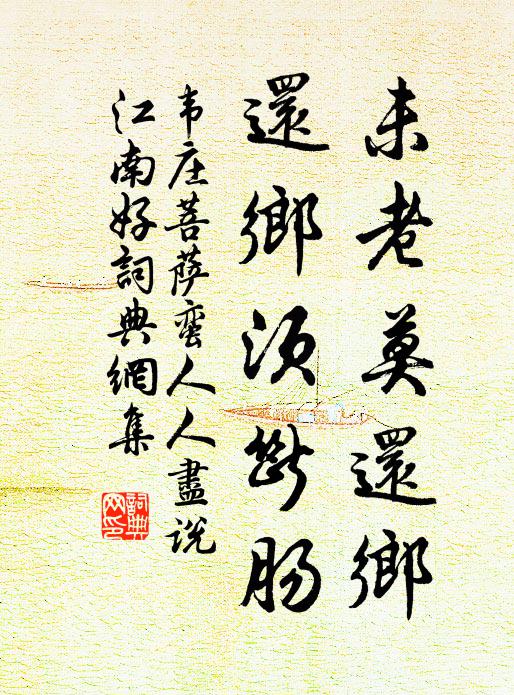 未老莫還鄉
還鄉須斷腸
韦庄菩萨蛮人人盡说
江南好詞典網集
詞典
网印